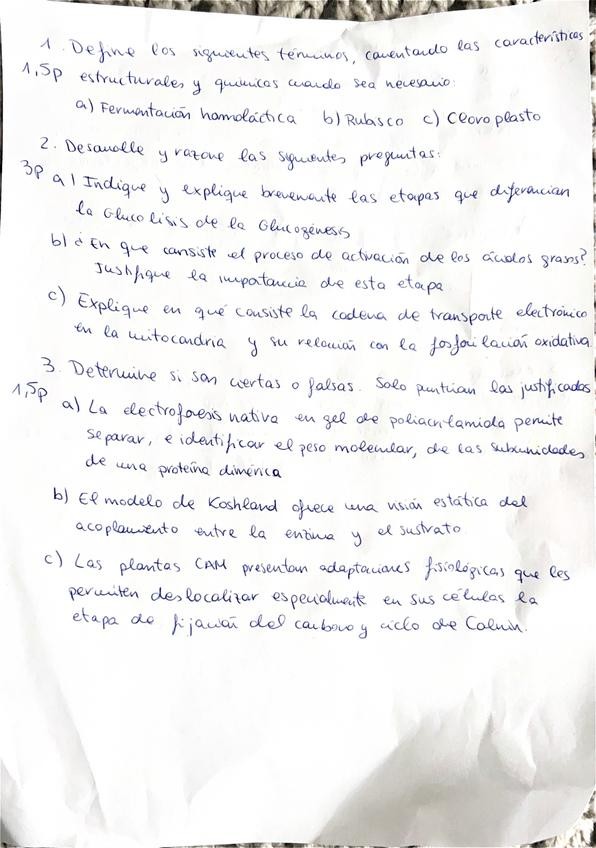 1. Define los siguientes términos, comentando las características
1,5p estructurales y químicas cuando sea necesario:
a) Fermentación homoláctica b) Rubisco c) Cloroplasto
2. Desarrolle y razone las siguientes preguntas:
3p a) Indique y explique brevemente las etapas que diferencian
la Glucolisis de la Glucogénesis
b) ¿En que consiste el proceso de activación de los ácidos grasos?
Justifique la importancia de esta etapa
c) Explique en qué consiste la cadena de transporte electrónico
en la mitocondria y su relación con la fosforilación oxidativa.
3. Determine si son ciertas o falsas. Solo puntúan las justificadas
1,5p a) La electroforesis nativa en gel de poliacrilamida permite
separar, e identificar el peso molecular, de las subunidades
de una proteína dimérica
b) El modelo de Koshland ofrece una visión estática del
acoplamiento entre la enzima y el sustrato.
c) Las plantas CAM presentan adaptaciones fisiológicas que les
permiten deslocalizar espacialmente en sus células la
etapa de fijación del carbono y ciclo de Calvin.